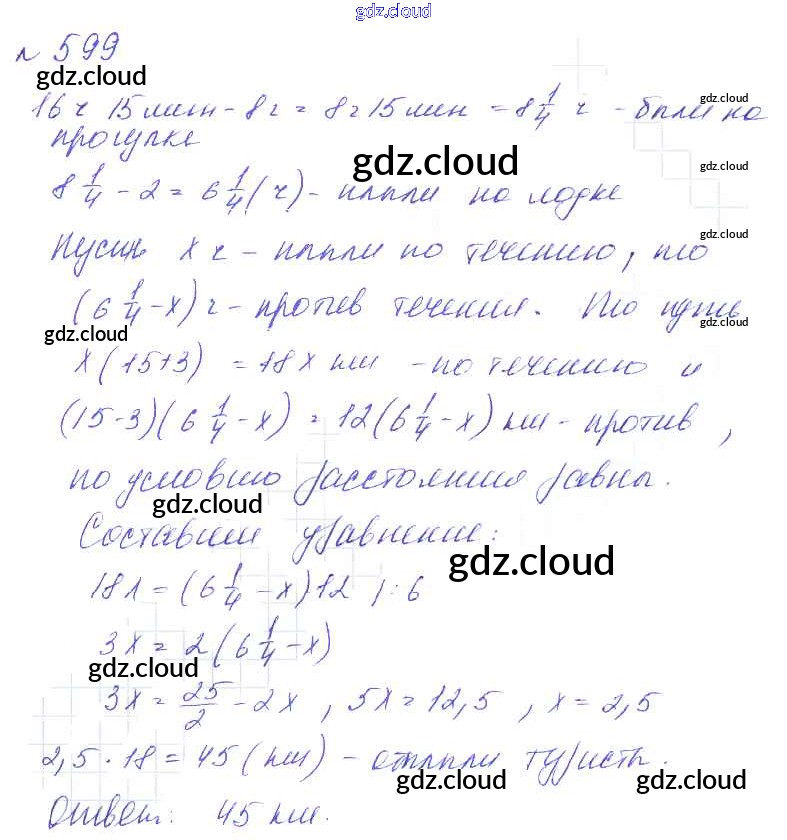 gdz.cloud
№ 599
gdz.cloud
16 ч 15 мин - 8 ч = 8 ч 15 мин = 8 1/4 ч - были на
gdz.cloud
прогулке
gdz.cloud
gdz.cloud
8 1/4 - 2 = 6 1/4 (ч) - плыли на лодке
gdz.cloud
Пусть x ч - плыли по течению, то
(6 1/4 - x) ч - против течения. То путь
gdz.cloud
gdz.cloud
x(15+3) = 18x км - по течению и
(15-3)(6 1/4 - x) = 12(6 1/4 - x) км - против,
по условию расстояния равны.
gdz.cloud
Составим уравнение:
gdz.cloud
18x = (6 1/4 - x) 12 | : 6
3x = 2(6 1/4 - x)
gdz.cloud
3x = 25/2 - 2x, 5x = 12,5, x = 2,5
2,5 · 18 = 45 (км) - отплыли туристы.
gdz.cloud
gdz.cloud
Ответ: 45 км.